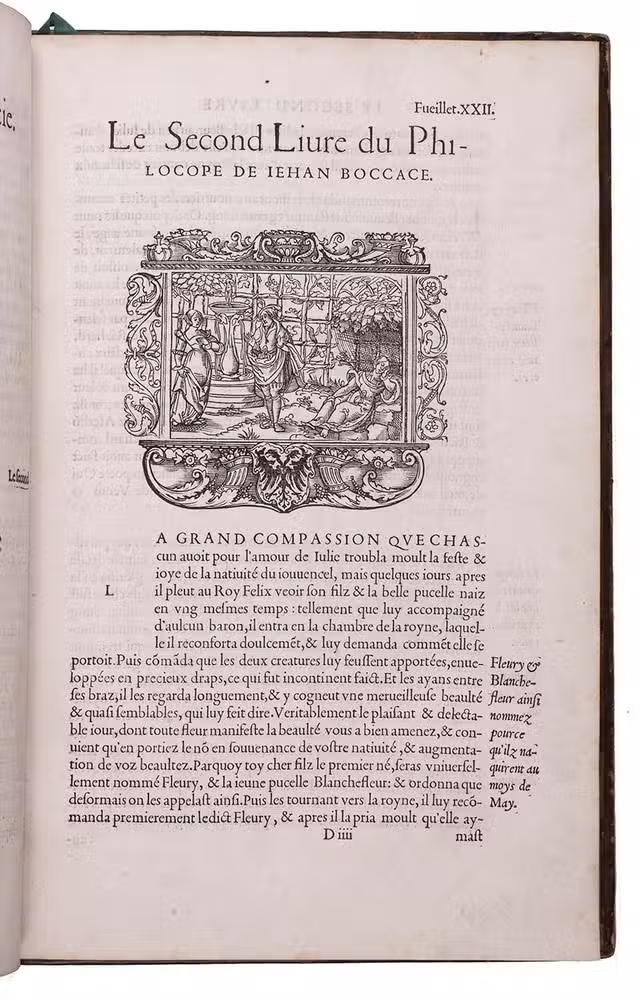 cie.
Le second
Fueillet.XXII.
Le Second Liure du Phi-
LOCOPE DE IEHAN BOCCACE.
A GRAND COMPASSION QVE CHAS-
cun auoit pour l'amour de Iulie troubla moult la feſte &
ioye de la natiuité du iouuencel, mais quelques iours apres
L
il pleut au Roy Felix veoir ſon filz & la belle pucelle naiz
en vng meſmes temps : tellement que luy accompaigné
d'aulcun baron,il entra en la chambre de la royne, laquel-
le il reconforta doulcemẽt,& luy demanda commẽt elle ſe
portoit.Puis cõmãda que les deux creatures luy feuſſent apportées,enue-
loppées en precieux draps,ce qui fut incontinent faict.Et les ayans entre
ſes braz,il les regarda longuement,& y cogneut vne merueilleuſe beaulté
& quaſi ſemblables, qui luy feit dire.Veritablement le plaiſant & delecta-
ble iour,dont toute fleur manifeſte la beaulté vous a bien amenez,& con-
uient qu'en portiez le nõ en ſouuenance de voſtre natiuité ,& augmenta-
tion de voz beaultez.Parquoy toy cher filz le premier né,ſeras vniuerſel-
lement nommé Fleury, & la ieune pucelle Blanchefleur: & ordonna que
deſormais on les appelaſt ainſi.Puis les tournant vers la royne, il luy recõ-
manda premierement ledict Fleury , & apres il la pria moult qu'elle ay-
Fleury &
Blanche-
fleur ainſi
nommez
pource
qu'ilz na-
quirent au
moys de
May.
D iiii
maſt